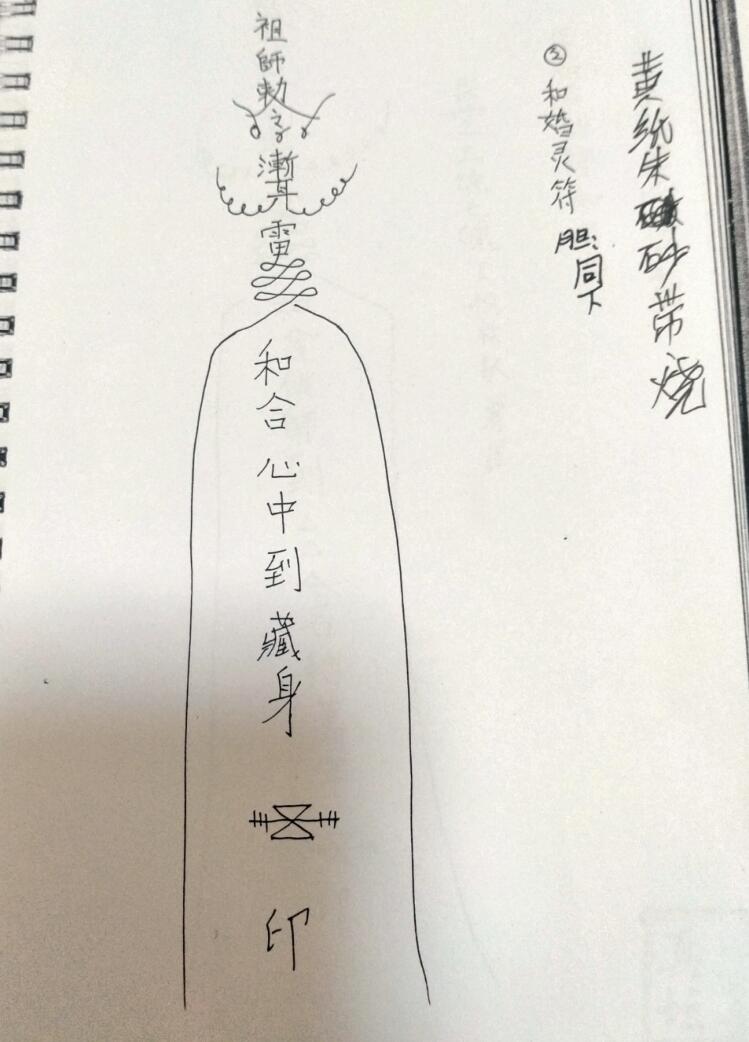 黄纸朱砂带烧
② 和婚灵符 胆：同下
祖師勅
雷
和合心中到藏身
印